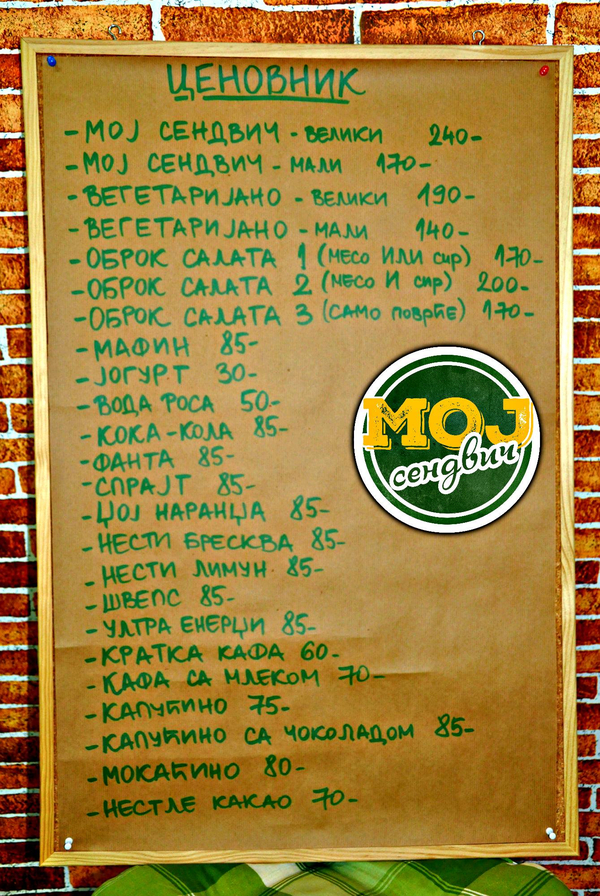 ЦЕНОВНИК
- МОЈ СЕНДВИЧ - ВЕЛИКИ 240-
- МОЈ СЕНДВИЧ - МАЛИ 170-
- ВЕГЕТАРИЈАНО - ВЕЛИКИ 190-
- ВЕГЕТАРИЈАНО - МАЛИ 140-
- ОБРОК САЛАТА 1 (МЕСО ИЛИ СИР) 170-
- ОБРОК САЛАТА 2 (МЕСО И СИР) 200-
- ОБРОК САЛАТА 3 (САМО ПОВРЋЕ) 170-
- МАФИН 85-
- ЈОГУРТ 30-
- ВОДА РОСА 50-
- КОКА-КОЛА 85-
- ФАНТА 85-
- СПРАЈТ 85-
- ЏОЈ НАРАНЏА 85-
- НЕСТИ БРЕСКВА 85-
- НЕСТИ ЛИМУН 85-
- ШВЕПС 85-
- УЛТРА ЕНЕРЏИ 85-
- КРАТКА КАФА 60-
- КАФА СА МЛЕКОМ 70-
- КАПУЋИНО 75-
- КАПУЋИНО СА ЧОКОЛАДОМ 85-
- МОКАЋИНО 80-
- НЕСТЛЕ КАКАО 70-
МОЈ
сендвич